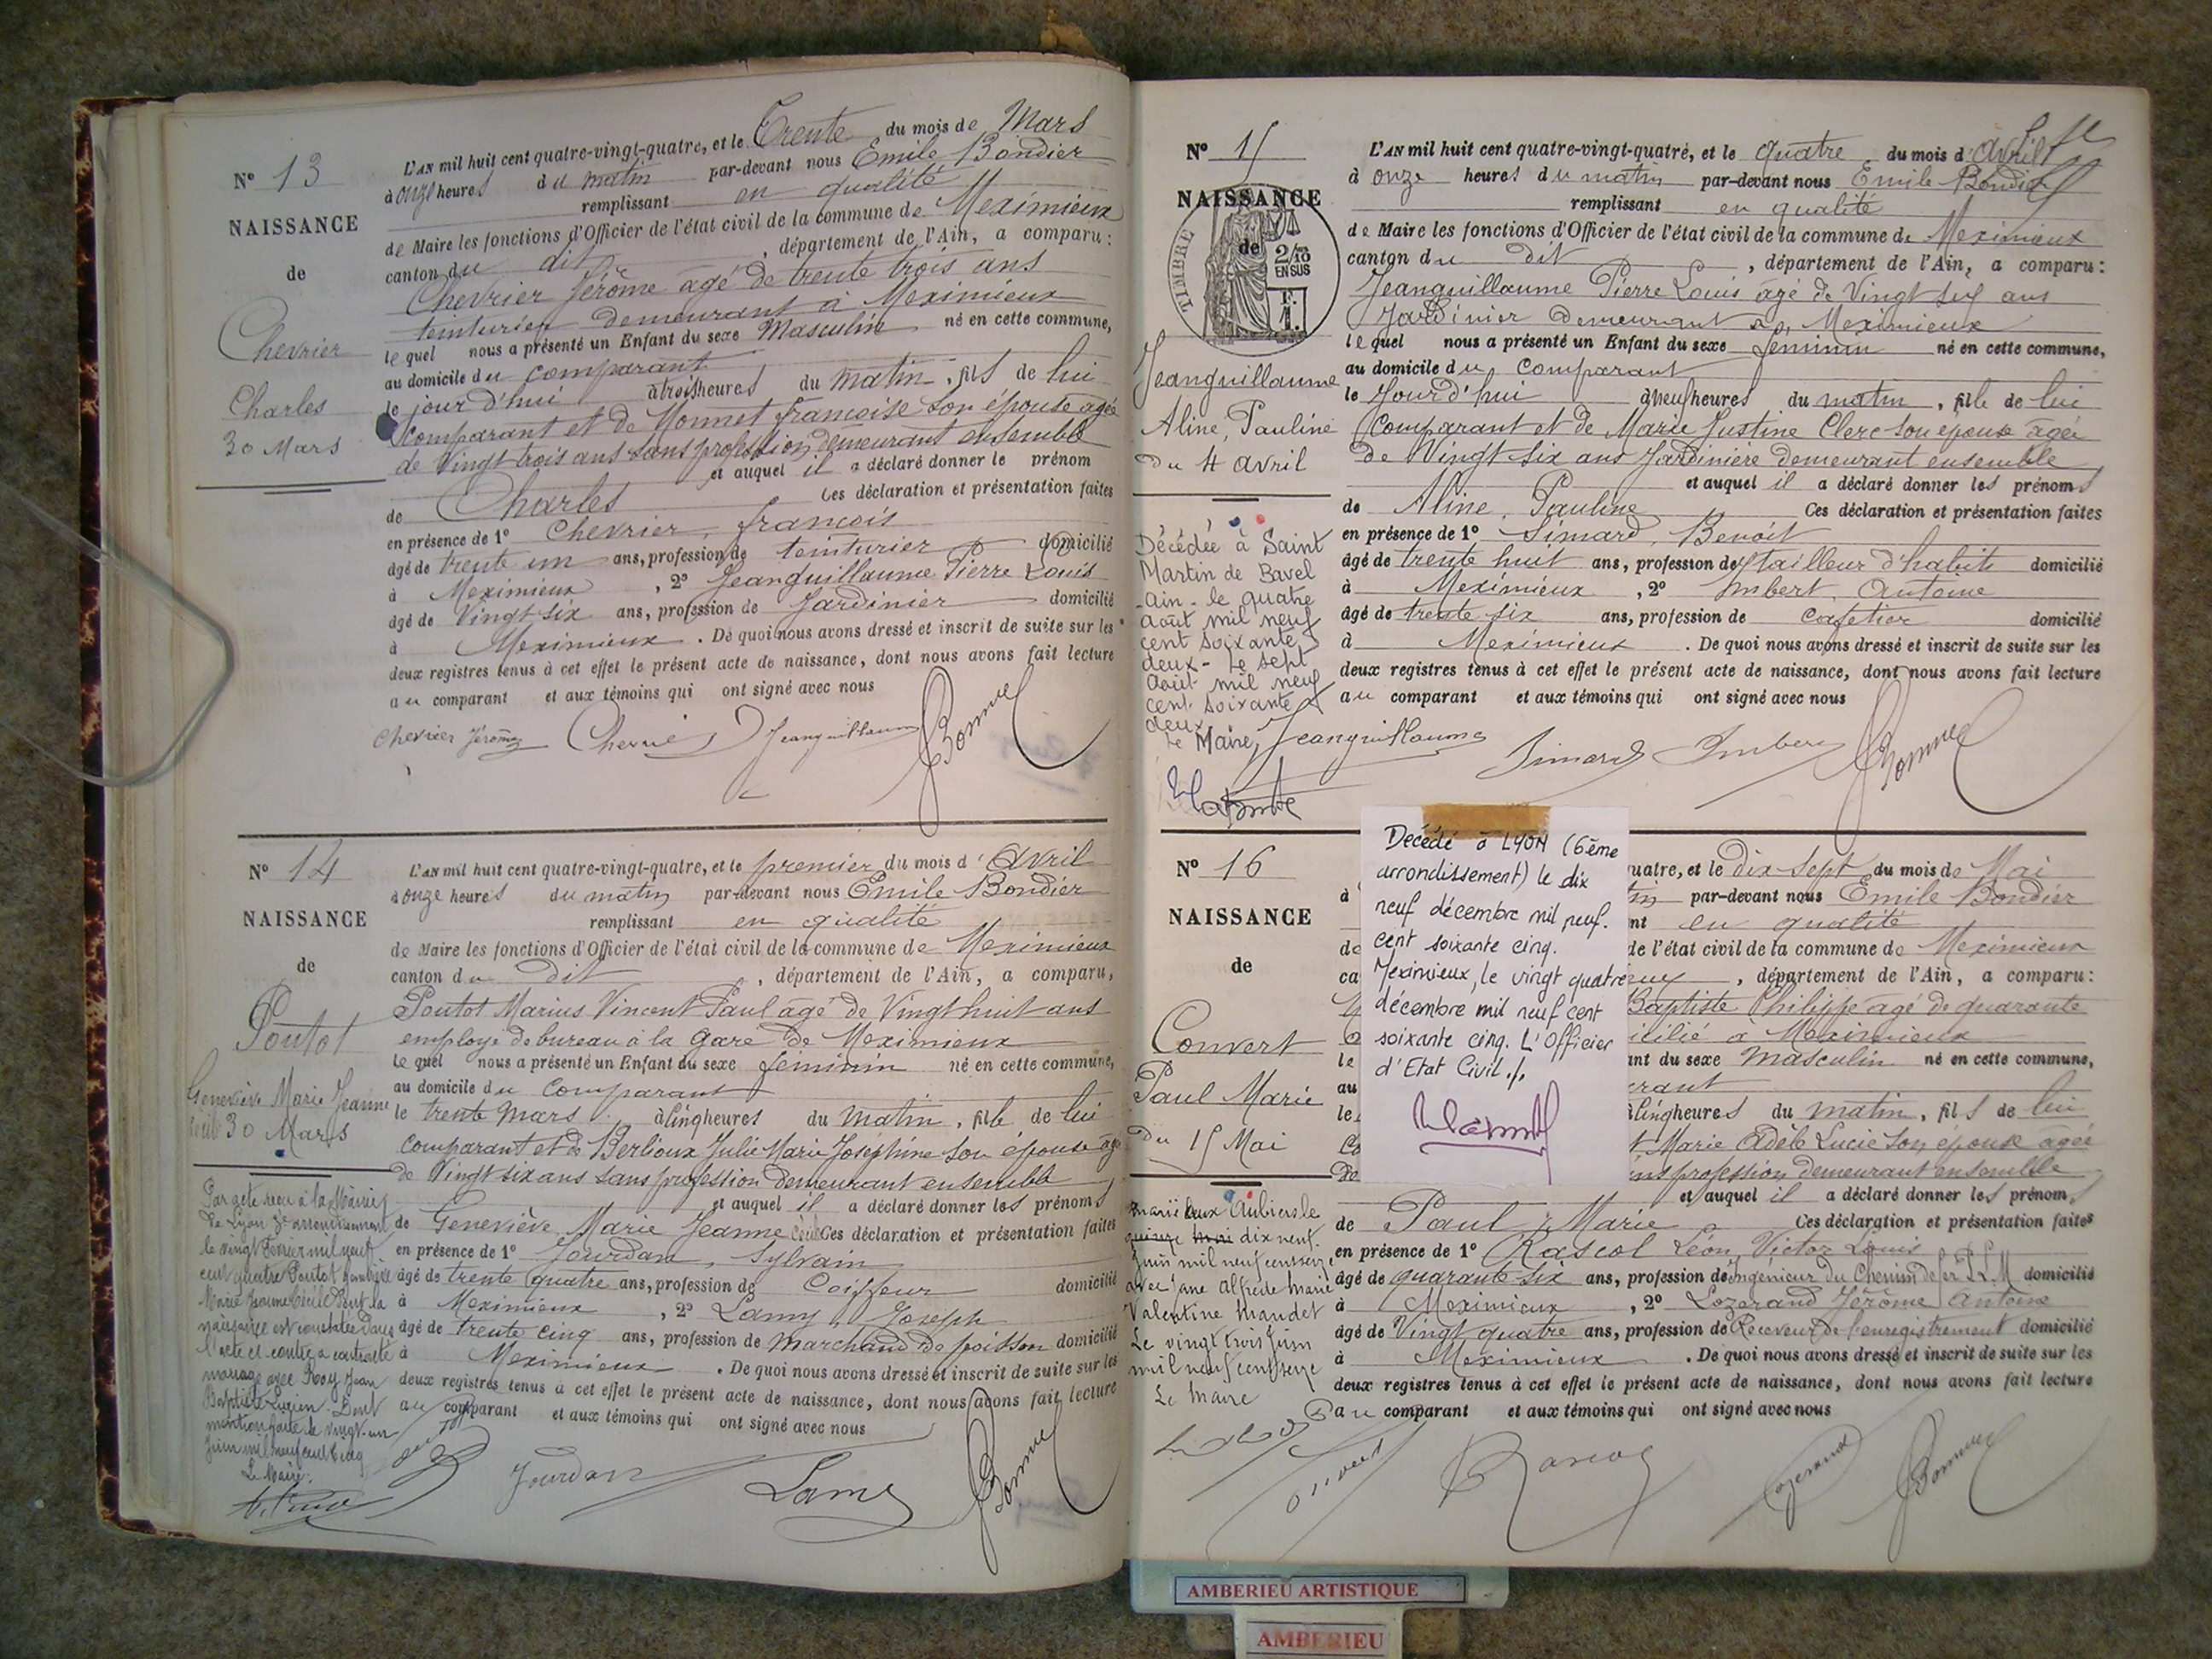 N° 13
NAISSANCE
de
Chevrier
Charles
30 Mars
L'AN mil huit cent quatre-vingt-quatre, et le Trente du mois de Mars
à onze heures du matin par-devant nous Emile Bondier
remplissant en qualité
de Maire les fonctions d'Officier de l'état civil de la commune de Meximieux
canton du dit, département de l'Ain, a comparu:
Chevrier Jérôme agé de trente trois ans
teinturier demeurant à Meximieux
lequel nous a présenté un Enfant du sexe Masculin né en cette commune,
au domicile du comparant
le jour d'hui à trois heures du matin, fils de lui
comparant et de Monnet françoise son épouse agée
de Vingt trois ans sans profession demeurant ensemble
et auquel il a déclaré donner le prénom
de Charles Ces déclaration et présentation faites
en présence de 1° Chevrier, françois
âgé de trente un ans, profession de teinturier domicilié
à Meximieux, 2° Jeanguillaume Pierre Louis
âgé de Vingt six ans, profession de Jardinier domicilié
à Meximieux. De quoi nous avons dressé et inscrit de suite sur les
deux registres tenus à cet effet le présent acte de naissance, dont nous avons fait lecture
au comparant et aux témoins qui ont signé avec nous
Chevrier Jérôme Jeanguillaume
N° 14
NAISSANCE
de
Poutot
Geneviève Marie Jeanne
30 Mars
L'AN mil huit cent quatre-vingt-quatre, et le premier du mois d'Avril
à onze heures du matin par-devant nous Emile Bondier
remplissant en qualité
de Maire les fonctions d'Officier de l'état civil de la commune de Meximieux
canton du dit, département de l'Ain, a comparu,
Poutot Marius Vincent Paul agé de Vingt huit ans
employé de bureau à la gare de Meximieux
lequel nous a présenté un Enfant du sexe féminin né en cette commune,
au domicile du comparant
le trente mars à cinq heures du matin, fille de lui
comparant et de Berlioux Julie Marie Joséphine son épouse agée
de Vingt six ans sans profession demeurant ensemble
et auquel il a déclaré donner les prénoms
de Geneviève Marie Jeanne Cécile Ces déclaration et présentation faites
en présence de 1° Jourdan, Sylvain
âgé de trente quatre ans, profession de Coiffeur domicilié
à Meximieux, 2° Lamy, Joseph
âgé de trente cinq ans, profession de Marchand de poisson domicilié
à Meximieux. De quoi nous avons dressé et inscrit de suite sur les
deux registres tenus à cet effet le présent acte de naissance, dont nous avons fait lecture
au comparant et aux témoins qui ont signé avec nous
Jourdan Lamy
Par acte reçu à la Mairie
de Lyon 3e arrondissement
le vingt Février mil neuf
cent quatre Poutot Geneviève
Marie Jeanne Cécile dont la
naissance est constatée dans
l'acte ci-contre a contracté
mariage avec Roy Jean
Baptiste Lucien. Dont
mention faite le vingt-un
Juin mil neuf cent cinq
Le Maire.
N° 15
NAISSANCE
de
TIMBRE
2/10
EN SUS
1 F.
Jeanguillaume
Aline, Pauline
Du 4 avril
L'AN mil huit cent quatre-vingt-quatre, et le quatre du mois d'Avril
à onze heures du matin par-devant nous Emile Bondier
remplissant en qualité
de Maire les fonctions d'Officier de l'état civil de la commune de Meximieux
canton du dit, département de l'Ain, a comparu:
Jeanguillaume Pierre Louis agé de Vingt six ans
Jardinier demeurant à Meximieux
lequel nous a présenté un Enfant du sexe féminin né en cette commune,
au domicile du comparant
le Jour d'hui à neuf heures du matin, fille de lui
Comparant et de Marie Justine Clerc son épouse agée
de Vingt six ans Jardinière demeurant ensemble
et auquel il a déclaré donner les prénoms
de Aline, Pauline Ces déclaration et présentation faites
en présence de 1° Simard, Benoit
âgé de trente huit ans, profession de tailleur d'habits domicilié
à Meximieux, 2° Imbert, Antoine
âgé de trente six ans, profession de cafetier domicilié
à Meximieux. De quoi nous avons dressé et inscrit de suite sur les
deux registres tenus à cet effet le présent acte de naissance, dont nous avons fait lecture
au comparant et aux témoins qui ont signé avec nous
Jeanguillaume Simard Imbert
Décédée à Saint
Martin de Bavel
-Ain- le quatre
août mil neuf
cent soixante
deux - Le sept
août mil neuf
cent soixante
deux
Le Maire,
N° 16
NAISSANCE
de
Convert
Paul Marie
Du 15 Mai
Décédé à LYON (6ème
arrondissement) le dix
neuf décembre mil neuf.
cent soixante cinq.
Meximieux, le vingt quatre
décembre mil neuf cent
soixante cinq. L'Officier
d'Etat Civil./.
uatre, et le dix sept du mois de Mai
par-devant nous Emile Bondier
nt en qualité
de l'état civil de la commune de Meximieux
, département de l'Ain, a comparu:
Baptiste Philippe agé de quarante
icilié à Meximieux
nt du sexe Masculin né en cette commune,
à cinq heures du matin, fils de lui
Marie Adèle Lucie son épouse agée
ans profession demeurant ensemble
et auquel il a déclaré donner les prénoms
de Paul, Marie Ces déclaration et présentation faites
en présence de 1° Rascol Léon, Victor Louis
âgé de quarante six ans, profession de Ingénieur du Chemin de fer P.L.M domicilié
à Meximieux, 2° Lozerand Jérôme Antoine
âgé de Vingt quatre ans, profession de Receveur de l'enregistrement domicilié
à Meximieux. De quoi nous avons dressé et inscrit de suite sur les
deux registres tenus à cet effet le présent acte de naissance, dont nous avons fait lecture
au comparant et aux témoins qui ont signé avec nous
dix neuf
Juin mil neuf cent seize
avec Jane Alfrède Marie
Valentine Mandet
Le vingt trois Juin
mil neuf cent seize
Le Maire
AMBERIEU ARTISTIQUE
AMBERIEU